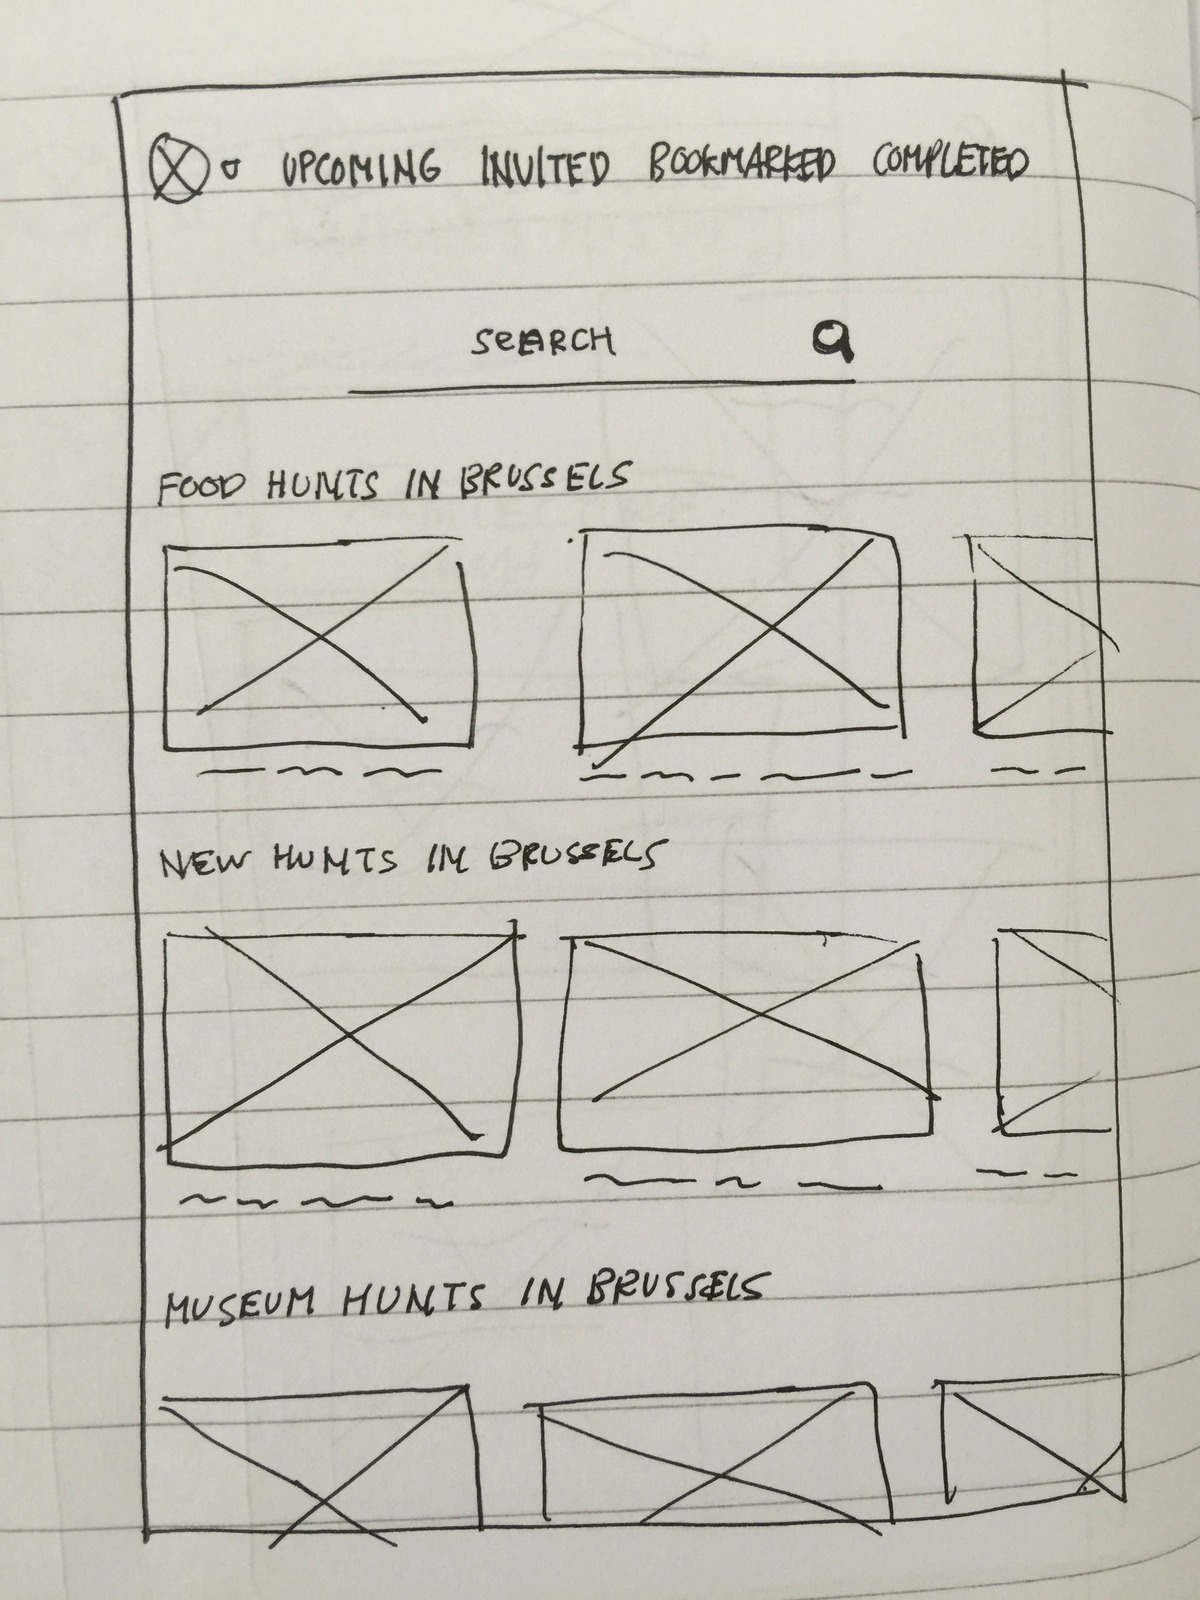 UPCOMING INVITED BOOKMARKED COMPLETED
SEARCH
FOOD HUNTS IN BRUSSELS
NEW HUNTS IN BRUSSELS
MUSEUM HUNTS IN BRUSSELS